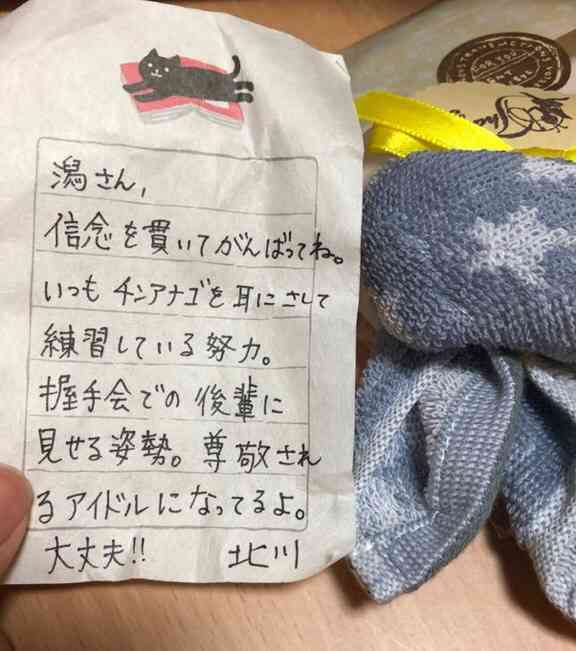 潟さん,
信念を貫いてがんばってね。
いつもチンアナゴを耳にさして
練習している努力。
握手会での後輩に
見せる姿勢。尊敬され
るアイドルになってるよ。
大丈夫!!　北川